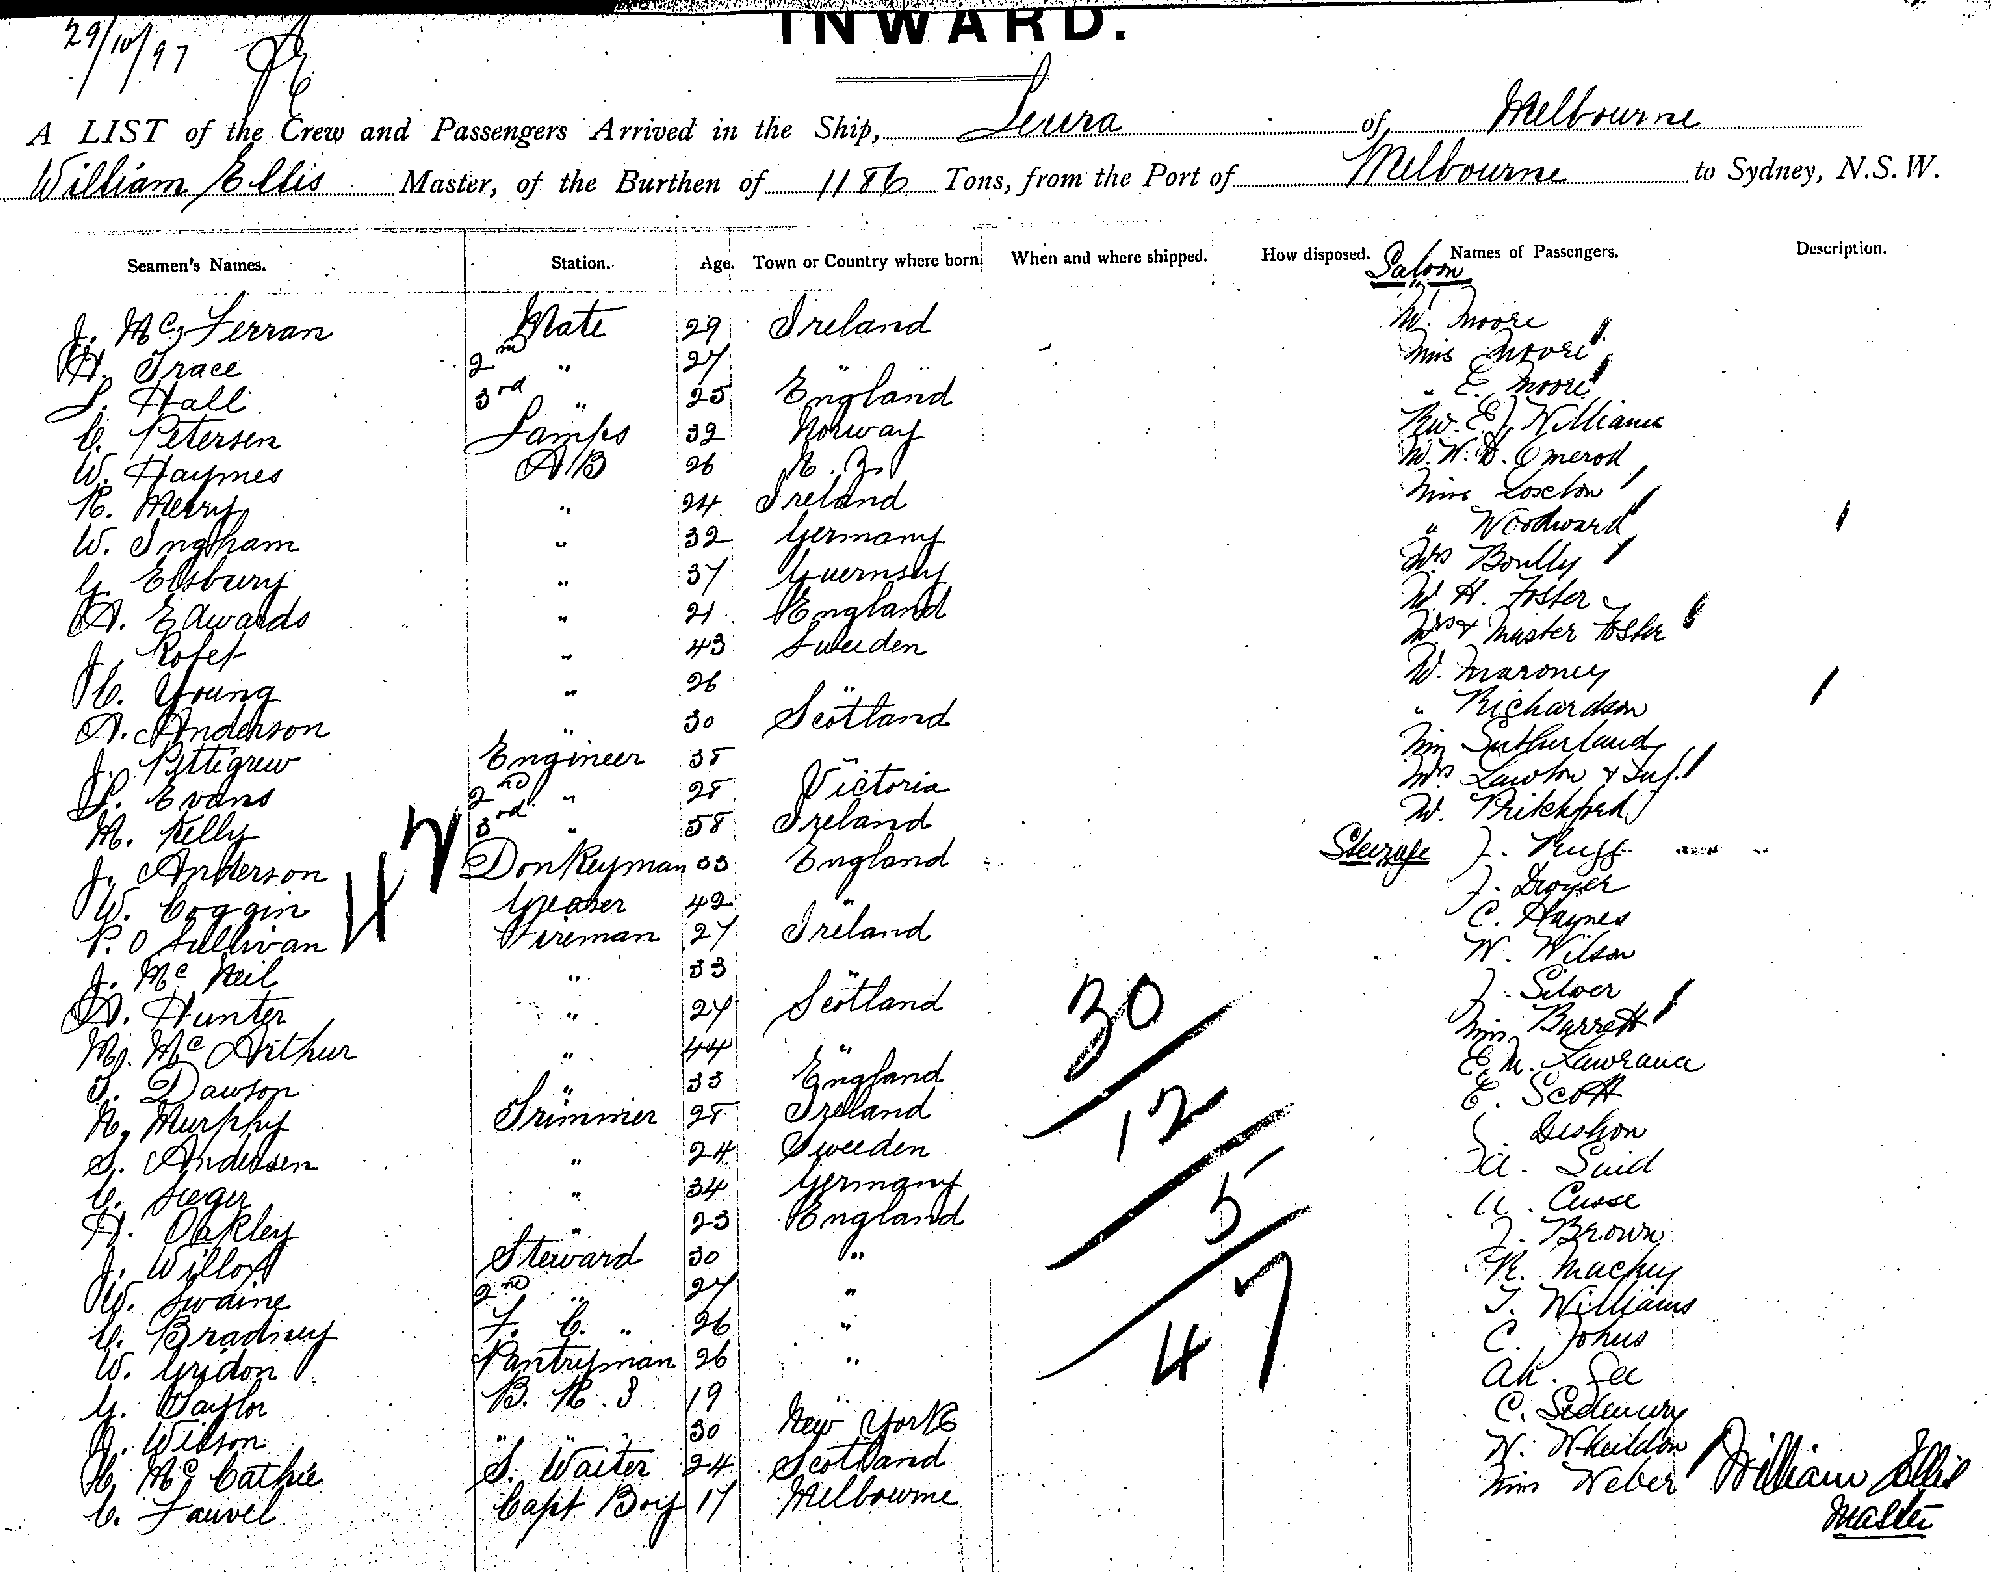 INWARD.
29/10/97
A LIST of the Crew and Passengers Arrived in the Ship, Leura of Melbourne
William Ellis Master, of the Burthen of 1186 Tons, from the Port of Melbourne to Sydney, N.S.W.
Seamen's Names. Station. Age. Town or Country where born When and where shipped. How disposed. Names of Passengers. Description.
Saloon
J. McFerran Mate 29 Ireland M. Moore
H. Trace 2nd " 27 " Miss Moore
S. Hall 3rd " 25 England " E. Moore
C. Petersen Lamps 32 Norway Rev. E. J. Williams
W. Haymes AB 26 N. Z. M. W. D. Omerod
R. Merry " 24 Ireland Miss Loxton
W. Ingham " 32 Germany " Woodward
G. Elsbury " 37 Guernsey Mrs Boully
A. Edwards " 21 England M. H. Foster
J. Rofef " 43 Sweeden Mrs & Master Foster
C. Young " 26 " M. Maroney
A. Anderson " 30 Scotland " Richardson
J. Pettigrew Engineer 35 " Miss Sutherland
S. Evans 2nd " 28 Victoria Mrs Lawton & Inf.
M. Kelly 3rd " 58 Ireland M. Pritchford
J. Anderson Donkeyman 33 England Steerage J. Rugg
W. Coggin Greaser 42 " J. Droyer
P. O Sullivan Fireman 27 Ireland C. Haynes
42
J. McNeil " 33 " W. Wilson
A. Hunter " 27 Scotland J. Silver
M. McArthur " 44 " Miss Barrett
T. Dawson " 33 England E. M. Lawrance
R. Murphy Trimmer 28 Ireland E. Scott
S. Andersen " 24 Sweeden Deshon
C. Seger " 34 Germany A. Suid
H. Oakley " 23 England A. Cusse
J. Willox Steward 30 " J. Brown
W. Swaine 2nd " 27 " R. Mackey
C. Bradney F. C. " 26 " T. Williams
W. Gridon Pantryman 26 " C. Johns
G. Taylor B. R. S 19 " Ah. Gee
A. Wilson " " " 30 New York C. Sedewry
R. McCathie S. Waiter 24 Scotland W. Wheildon
C. Fauvel Capt Boy 17 Melbourne Miss Weber
30
12
5
47
William Ellis
Master